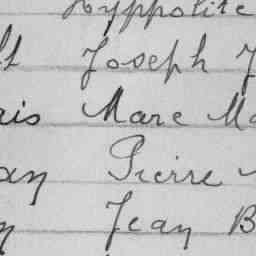 Hyppolite
lt Joseph J
ris Marc Ma
an Pierre
n Jean B